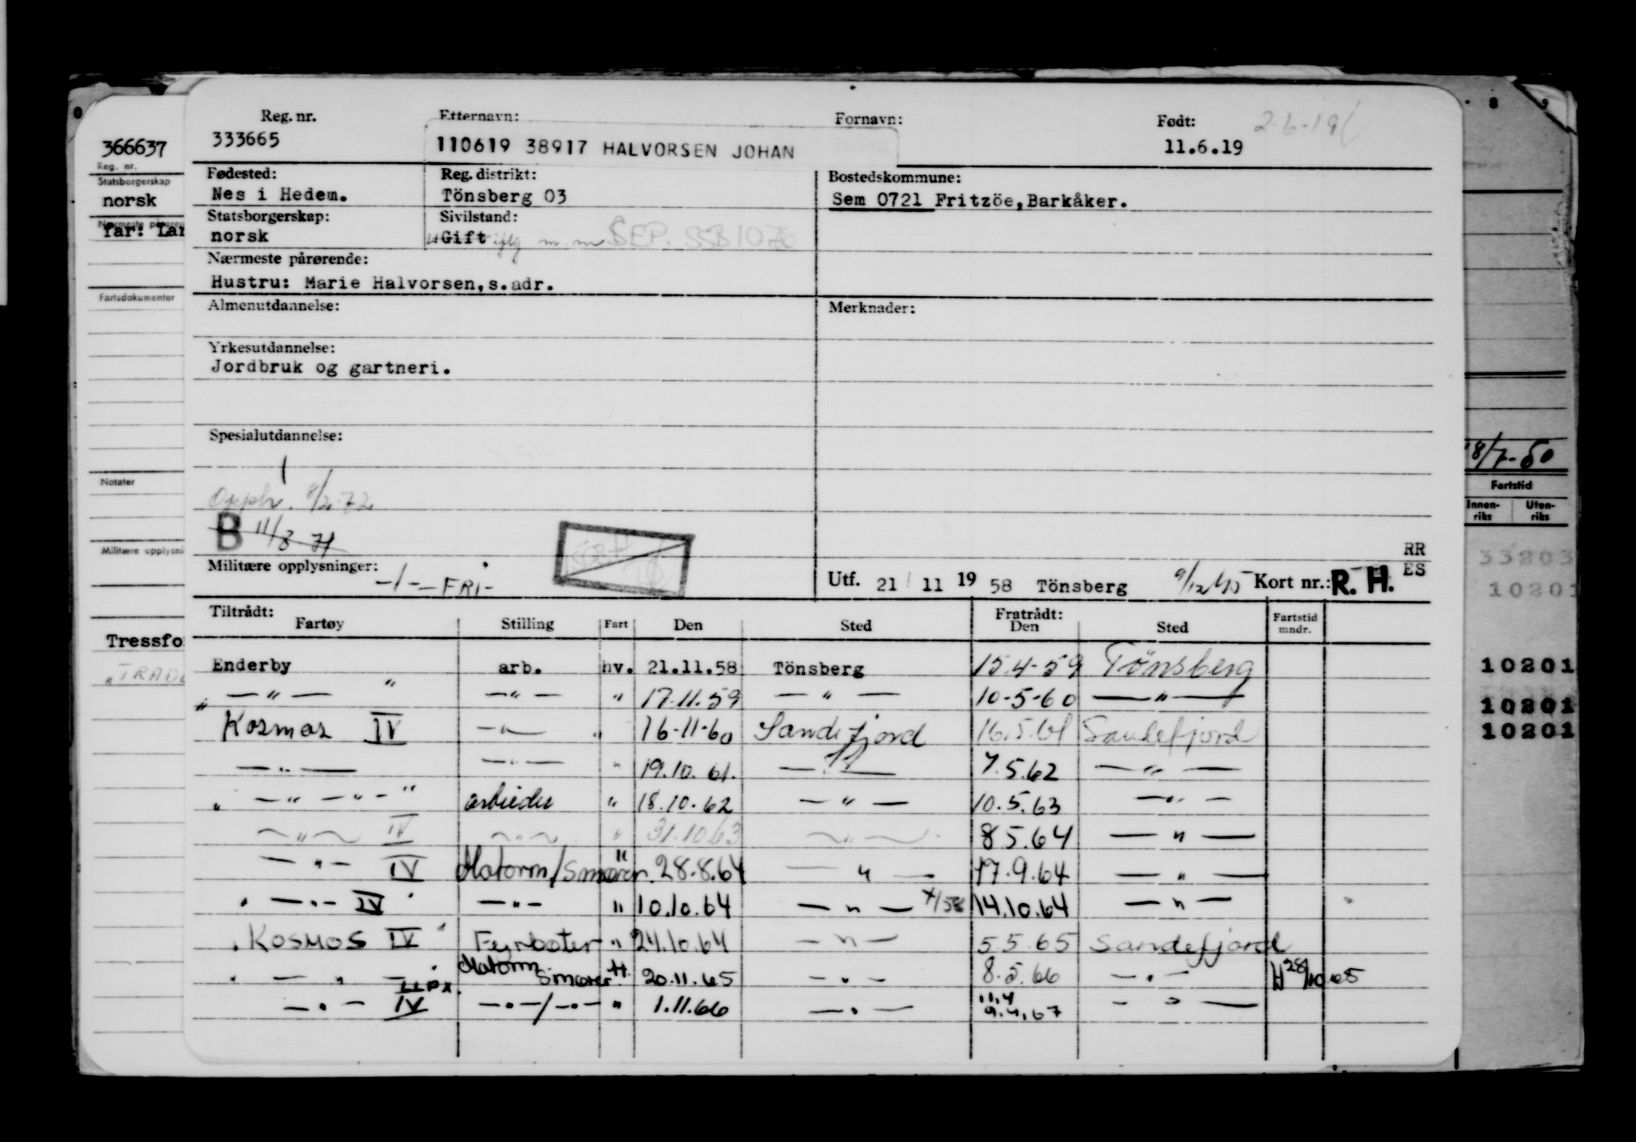 Reg. nr. Etternavn: Fornavn: Født: 2-6-19
333665 110619 38917 HALVORSEN JOHAN 11.6.19
Fødested: Reg. distrikt: Bostedskommune:
Nes i Hedem. Tönsberg 03 Sem 0721 Fritzöe,Barkåker.
Statsborgerskap: Sivilstand:
norsk Gift SEP. SSB 1076
Nærmeste pårørende:
Hustru: Marie Halvorsen,s.adr.
Almenutdannelse: Merknader:
Yrkesutdannelse:
Jordbruk og gartneri.
Spesialutdannelse:
Opph. 8/2-72
B 11/8 71
RR
Militære opplysninger: -/- - FRI- Utf. 21 / 11 19 58 Tönsberg 9/12 65 Kort nr.: R. H. ES
Tiltrådt: Fratrådt:
Fartøy Stilling Fart Den Sted Den Sted Fartstid mndr.
Enderby arb. hv. 21.11.58 Tönsberg 15.4-59 Tönsberg
" — " — " — " — " 17.11.59 — " — 10-5-60 — " —
Kosmos IV — " — " 16-11-60 Sandefjord 16.5.61 Sandefjord
— " — — " — " 19.10.61. — " — 7.5.62 — " —
" — " — " — " arbeider " 18.10.62 — " — 10.5.63 — " —
— " — IV — " — " 31.10.63 — " — 8.5.64 — " —
— " — IV Matorm/Smører " 28.8.64 — " — 17.9.64 — " —
" — " — IV " — " — " 10.10.64 — " — 14.10.64 — " —
" KOSMOS IV " Fyrbøter " 24.10.64 — " — 5.5.65 Sandefjord
" — " — Matorm Smører H. 20.11.65 — " — 8.5.66 — " — 28/10 65
— " — IV — " — / — " — " 1.11.66 — " — 11.4 9.4.67 — " —
366637
Reg. nr.
Statsborgerskap
norsk
Fartsdokumenter
Notater
Militære opplysni
Tressfo
8
9
18/7-60
Fartstid
Innen-riks Uten-riks
33203
10201
10201
10201
10201